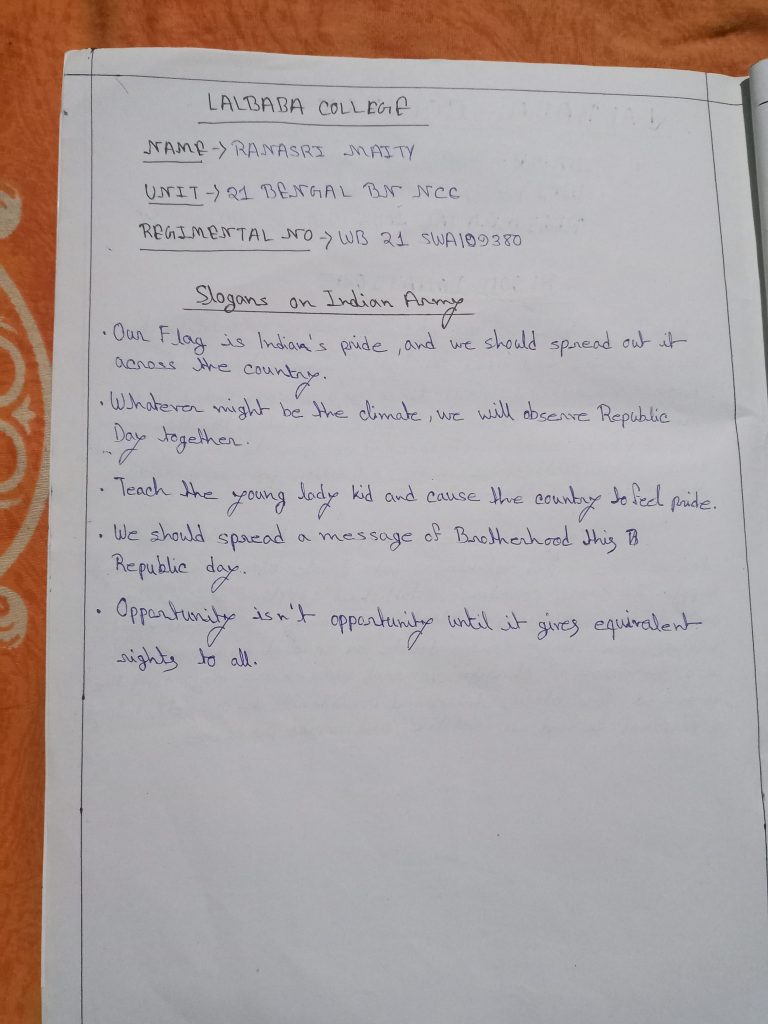 LALBABA COLLEGE
NAME → RANASRI MAITY
UNIT → 21 BENGAL BN NCC
REGIMENTAL NO → WB 21 SWA109380
Slogans on Indian Army
• Our Flag is Indian's pride, and we should spread out it
across the country.
• Whatever might be the climate, we will observe Republic
Day together.
• Teach the young lady kid and cause the country to feel pride.
• We should spread a message of Brotherhood this B
Republic day.
• Opportunity isn't opportunity until it gives equivalent
rights to all.